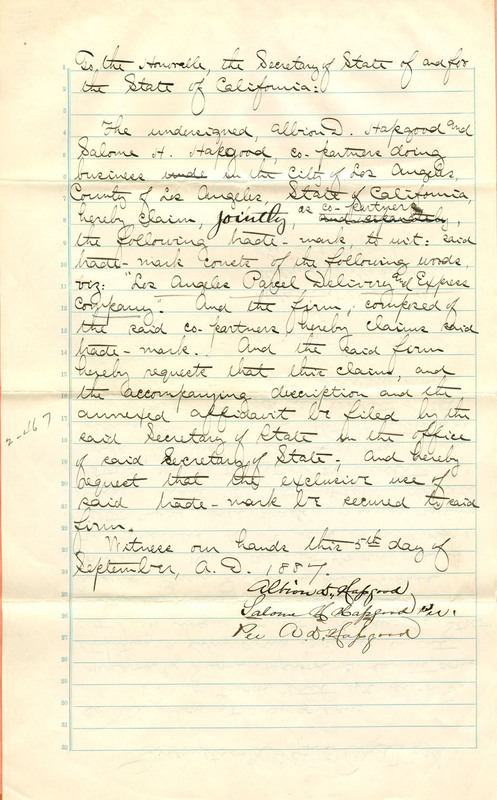 To, the Honorable, the Secretary of State of and for
the State of California:
The undersigned, Albion D. Hapgood and
Salome H. Hapgood, co-partners doing
business in the City of Los Angeles,
County of Los Angeles, State of California,
hereby claim, jointly, as co-partners and separately,
the following trade-mark, to wit: said
trade-mark consts of the following words,
viz: "Los Angeles Parcel Delivery and Express
Company". And the firm, composed of
the said co-partners hereby claims said
trade-mark. And the said firm
hereby requests that this claim, and
the accompanying description and the
annexed affidavit be filed by the
said Secretary of State in the office
of said Secretary of State; and hereby
request that the exclusive use of
said trade-mark be secured to said
firm.
Witness our hands this 5th day of
September, A.D. 1887.
Albion D. Hapgood
Salome H. Hapgood Per.
Per A. D. Hapgood
2-467